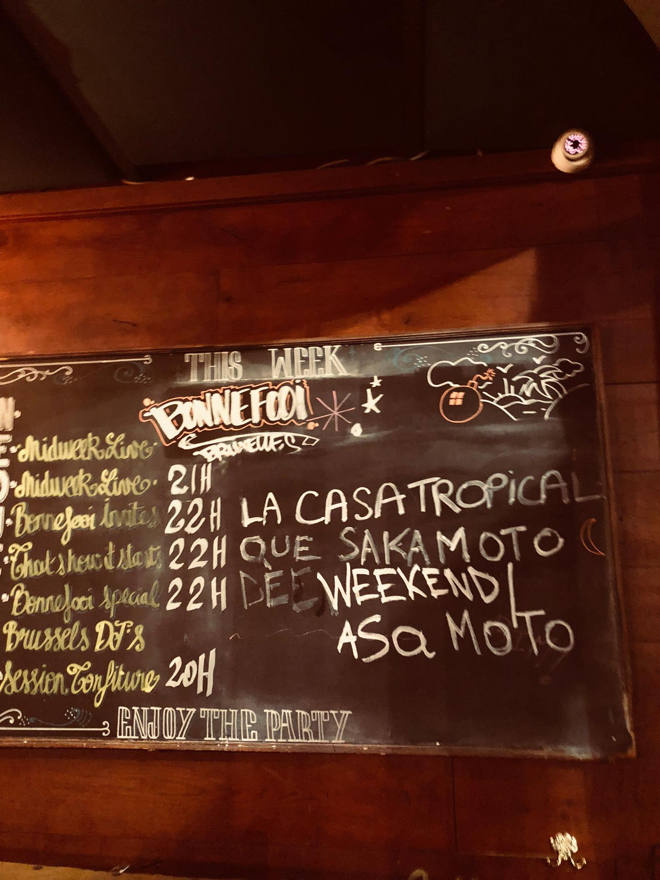 THIS WEEK
BONNEFOOI
BRUXELLES
Midweek Live
Midweek Live 21H
Bonnefooi Invites 22H
That's how it starts 22H
Bonnefooi special 22H
Brussels DJ's
Session Confiture 20H
LA CASA TROPICAL
QUE SAKAMOTO
DEL WEEKEND!
ASa MOTO
ENJOY THE PARTY